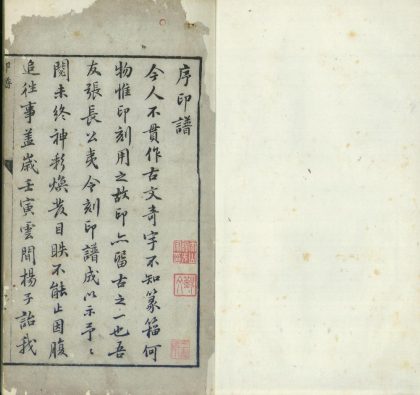 序印譜
今人不貫作古文奇字不知篆籀何
物惟印刻用之故印亦留古之一也吾
友張長公夷令刻印譜成以示予〻
閱未終神彩煥發目眙不能止因腹
追往事蓋歲壬寅雲間楊子詒我